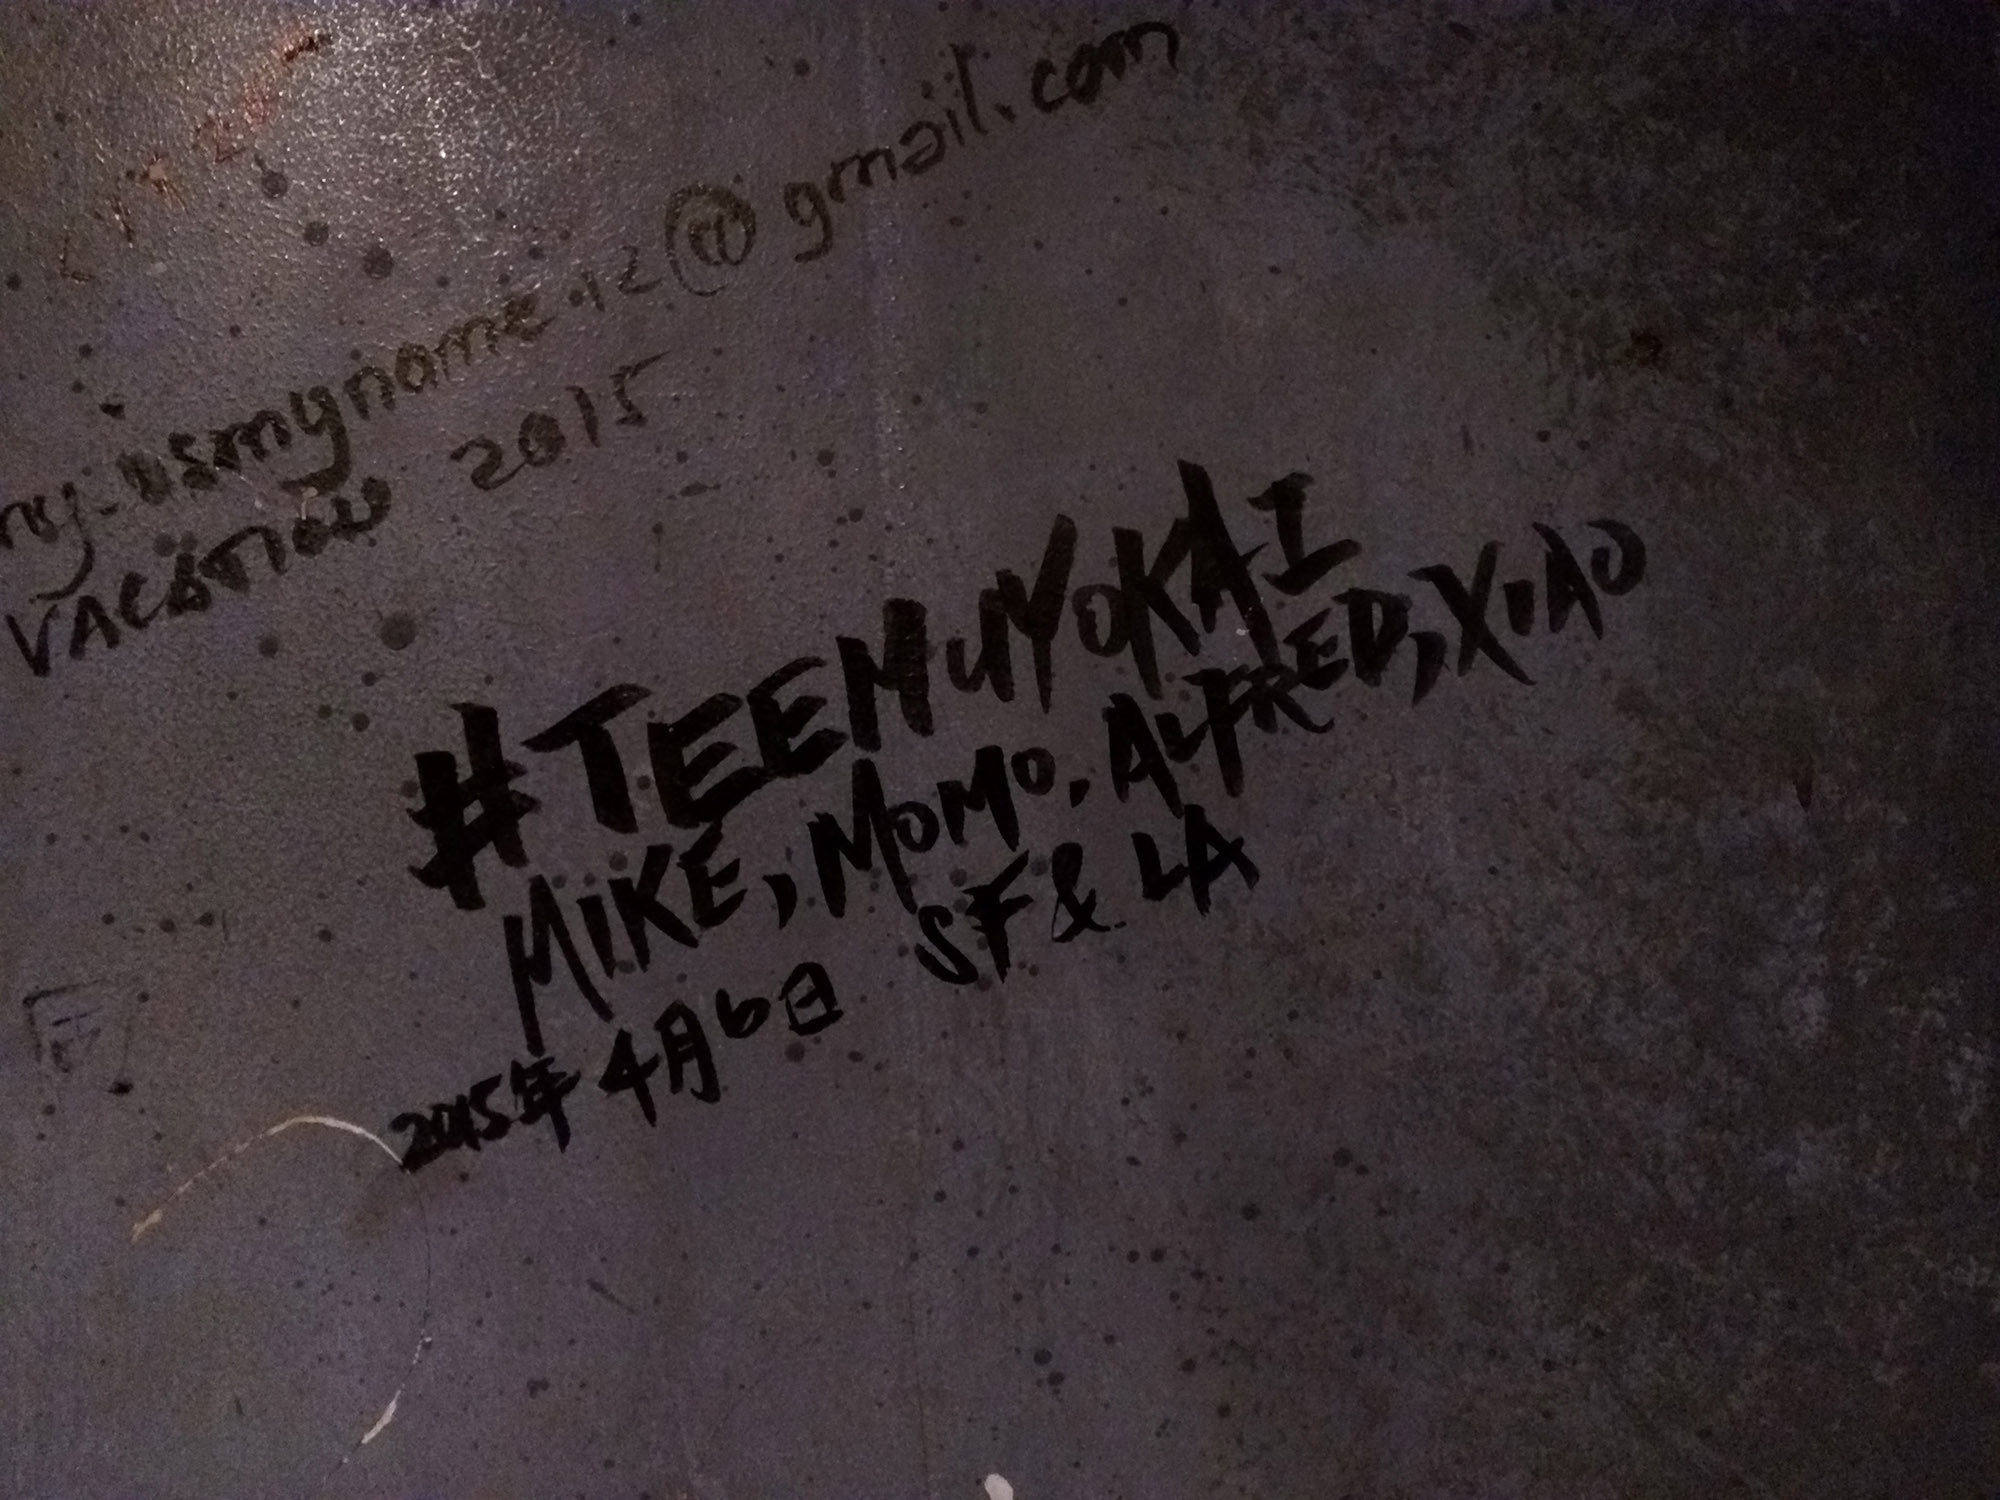 my-usmyname.12@gmail.com
VACATION 2015
#TEEMUYOKAI
MIKE, MOMO, ALFRED, XIAO
2015年4月6日 SF & LA